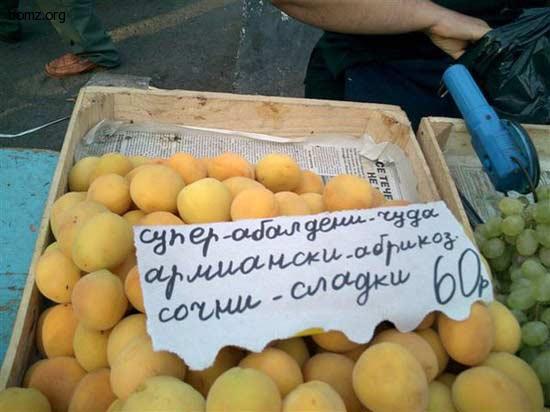 bomz.org
супер-абалдени-чуда
армиански-абрикоз.
сочни-сладки 60р
СЕ ТЕЧЕ
НЕ